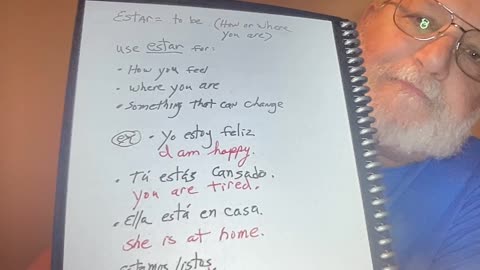 Estar = to be (How or where
you are)
use estar for:
• How you feel
• Where you are
• Something that can change
ex • Yo estoy feliz
I am happy.
• Tú estás cansado.
you are tired.
• Ella está en casa.
she is at home.
estamos listos.